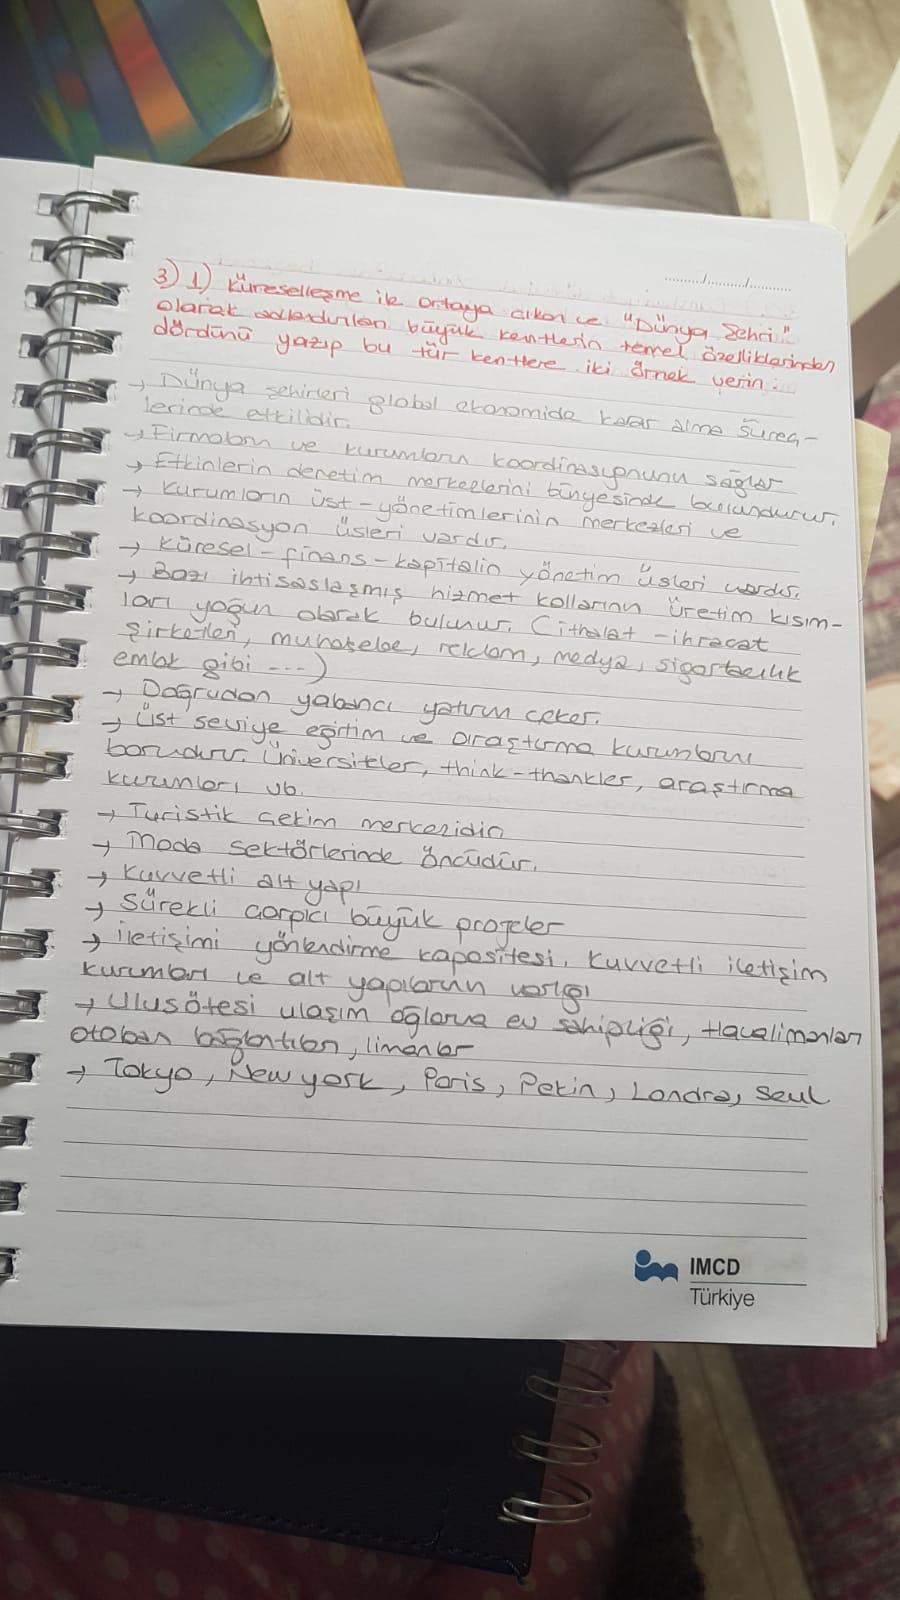 ......../........../..........
3) 1) Küreselleşme ile ortaya çıkan ve "Dünya Şehri"
olarak adlandırılan büyük kentlerin temel özelliklerinden
dördünü yazıp bu tür kentlere iki örnek verin.
→ Dünya şehirleri global ekonomide karar alma süreç-
lerinde etkilidir.
→ Firmaların ve kurumların koordinasyonunu sağlar
→ Etkinlerin denetim merkezlerini bünyesinde bulundurur.
→ Kurumların üst-yönetimlerinin merkezleri ve
koordinasyon üsleri vardır.
→ Küresel-finans-kapitalin yönetim üsleri vardır.
→ Bazı ihtisaslaşmış hizmet kollarının üretim kısım-
ları yoğun olarak bulunur. (ithalat-ihracat
şirketleri, muhasebe, reklam, medya, sigortacılık
emlak gibi ---)
→ Doğrudan yabancı yatırım çeker.
→ Üst seviye eğitim ve araştırma kurumlarını
barındırır. Üniversiteler, think-thankler, araştırma
kurumları vb.
→ Turistik çekim merkezidir
→ Moda sektörlerinde öncüdür.
→ Kuvvetli alt yapı
→ Sürekli çarpıcı büyük projeler
→ İletişimi yönlendirme kapasitesi, kuvvetli iletişim
kurumları ve alt yapıların varlığı
→ Ulusötesi ulaşım ağlarına ev sahipliği, Havalimanları
otoban bağlantıları, limanlar
→ Tokyo, New york, Paris, Pekin, Londra, Seul
IMCD
Türkiye